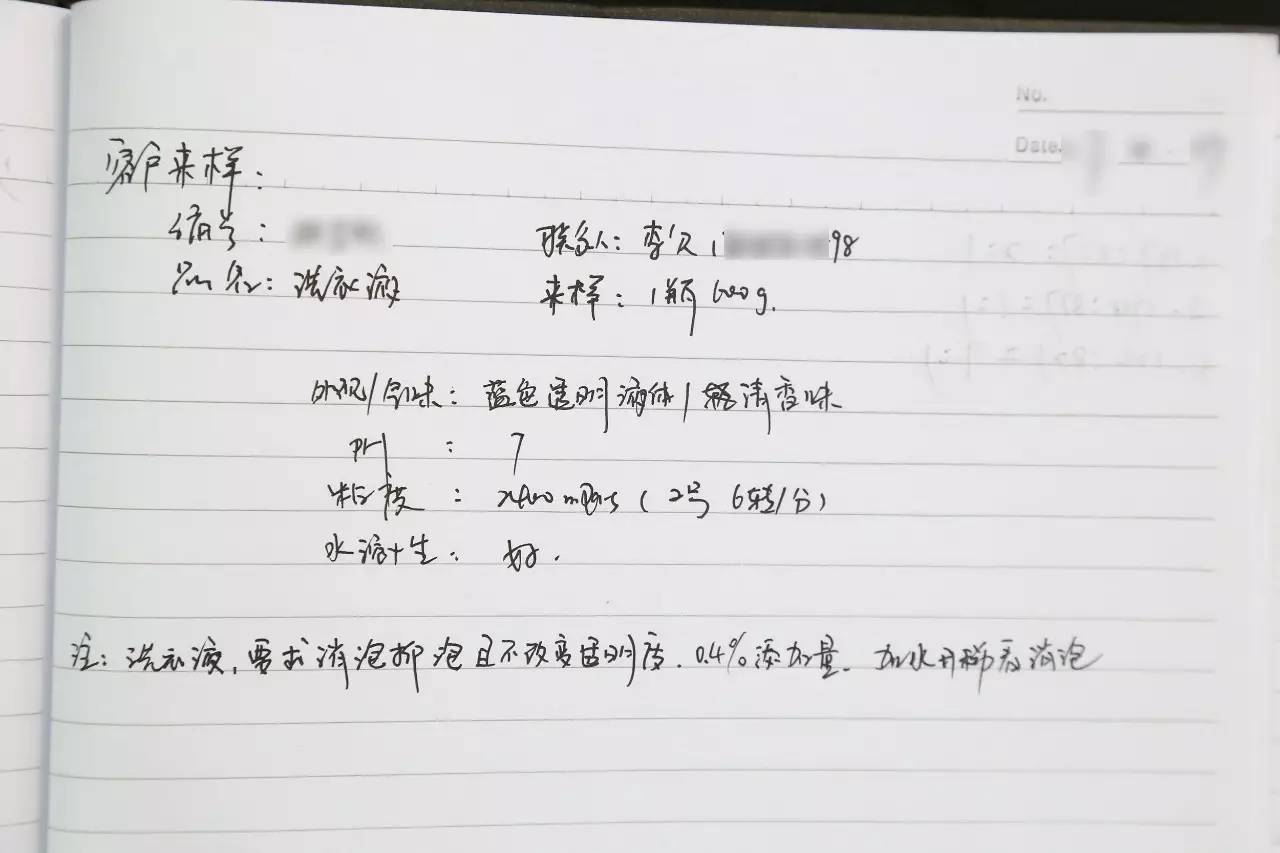 No.
Date.
客户来样：
编号： 联系人：李 1 98
品名：洗衣液 来样：1瓶 600g.
外观/气味：蓝色透明液体/ 清香味
PH ： 7
粘度 ： mpa·s（2号 6转/分）
水溶性： 好.
注：洗衣液，要求消泡抑泡且不改变透明度. 0.4%添加量. 加水 稀看消泡